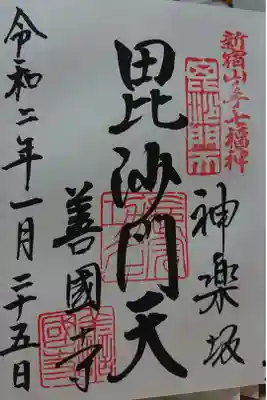 新宿山ノ手七福神
毘沙門天
神楽坂
毘沙門天
善國寺
令和二年一月二十五日